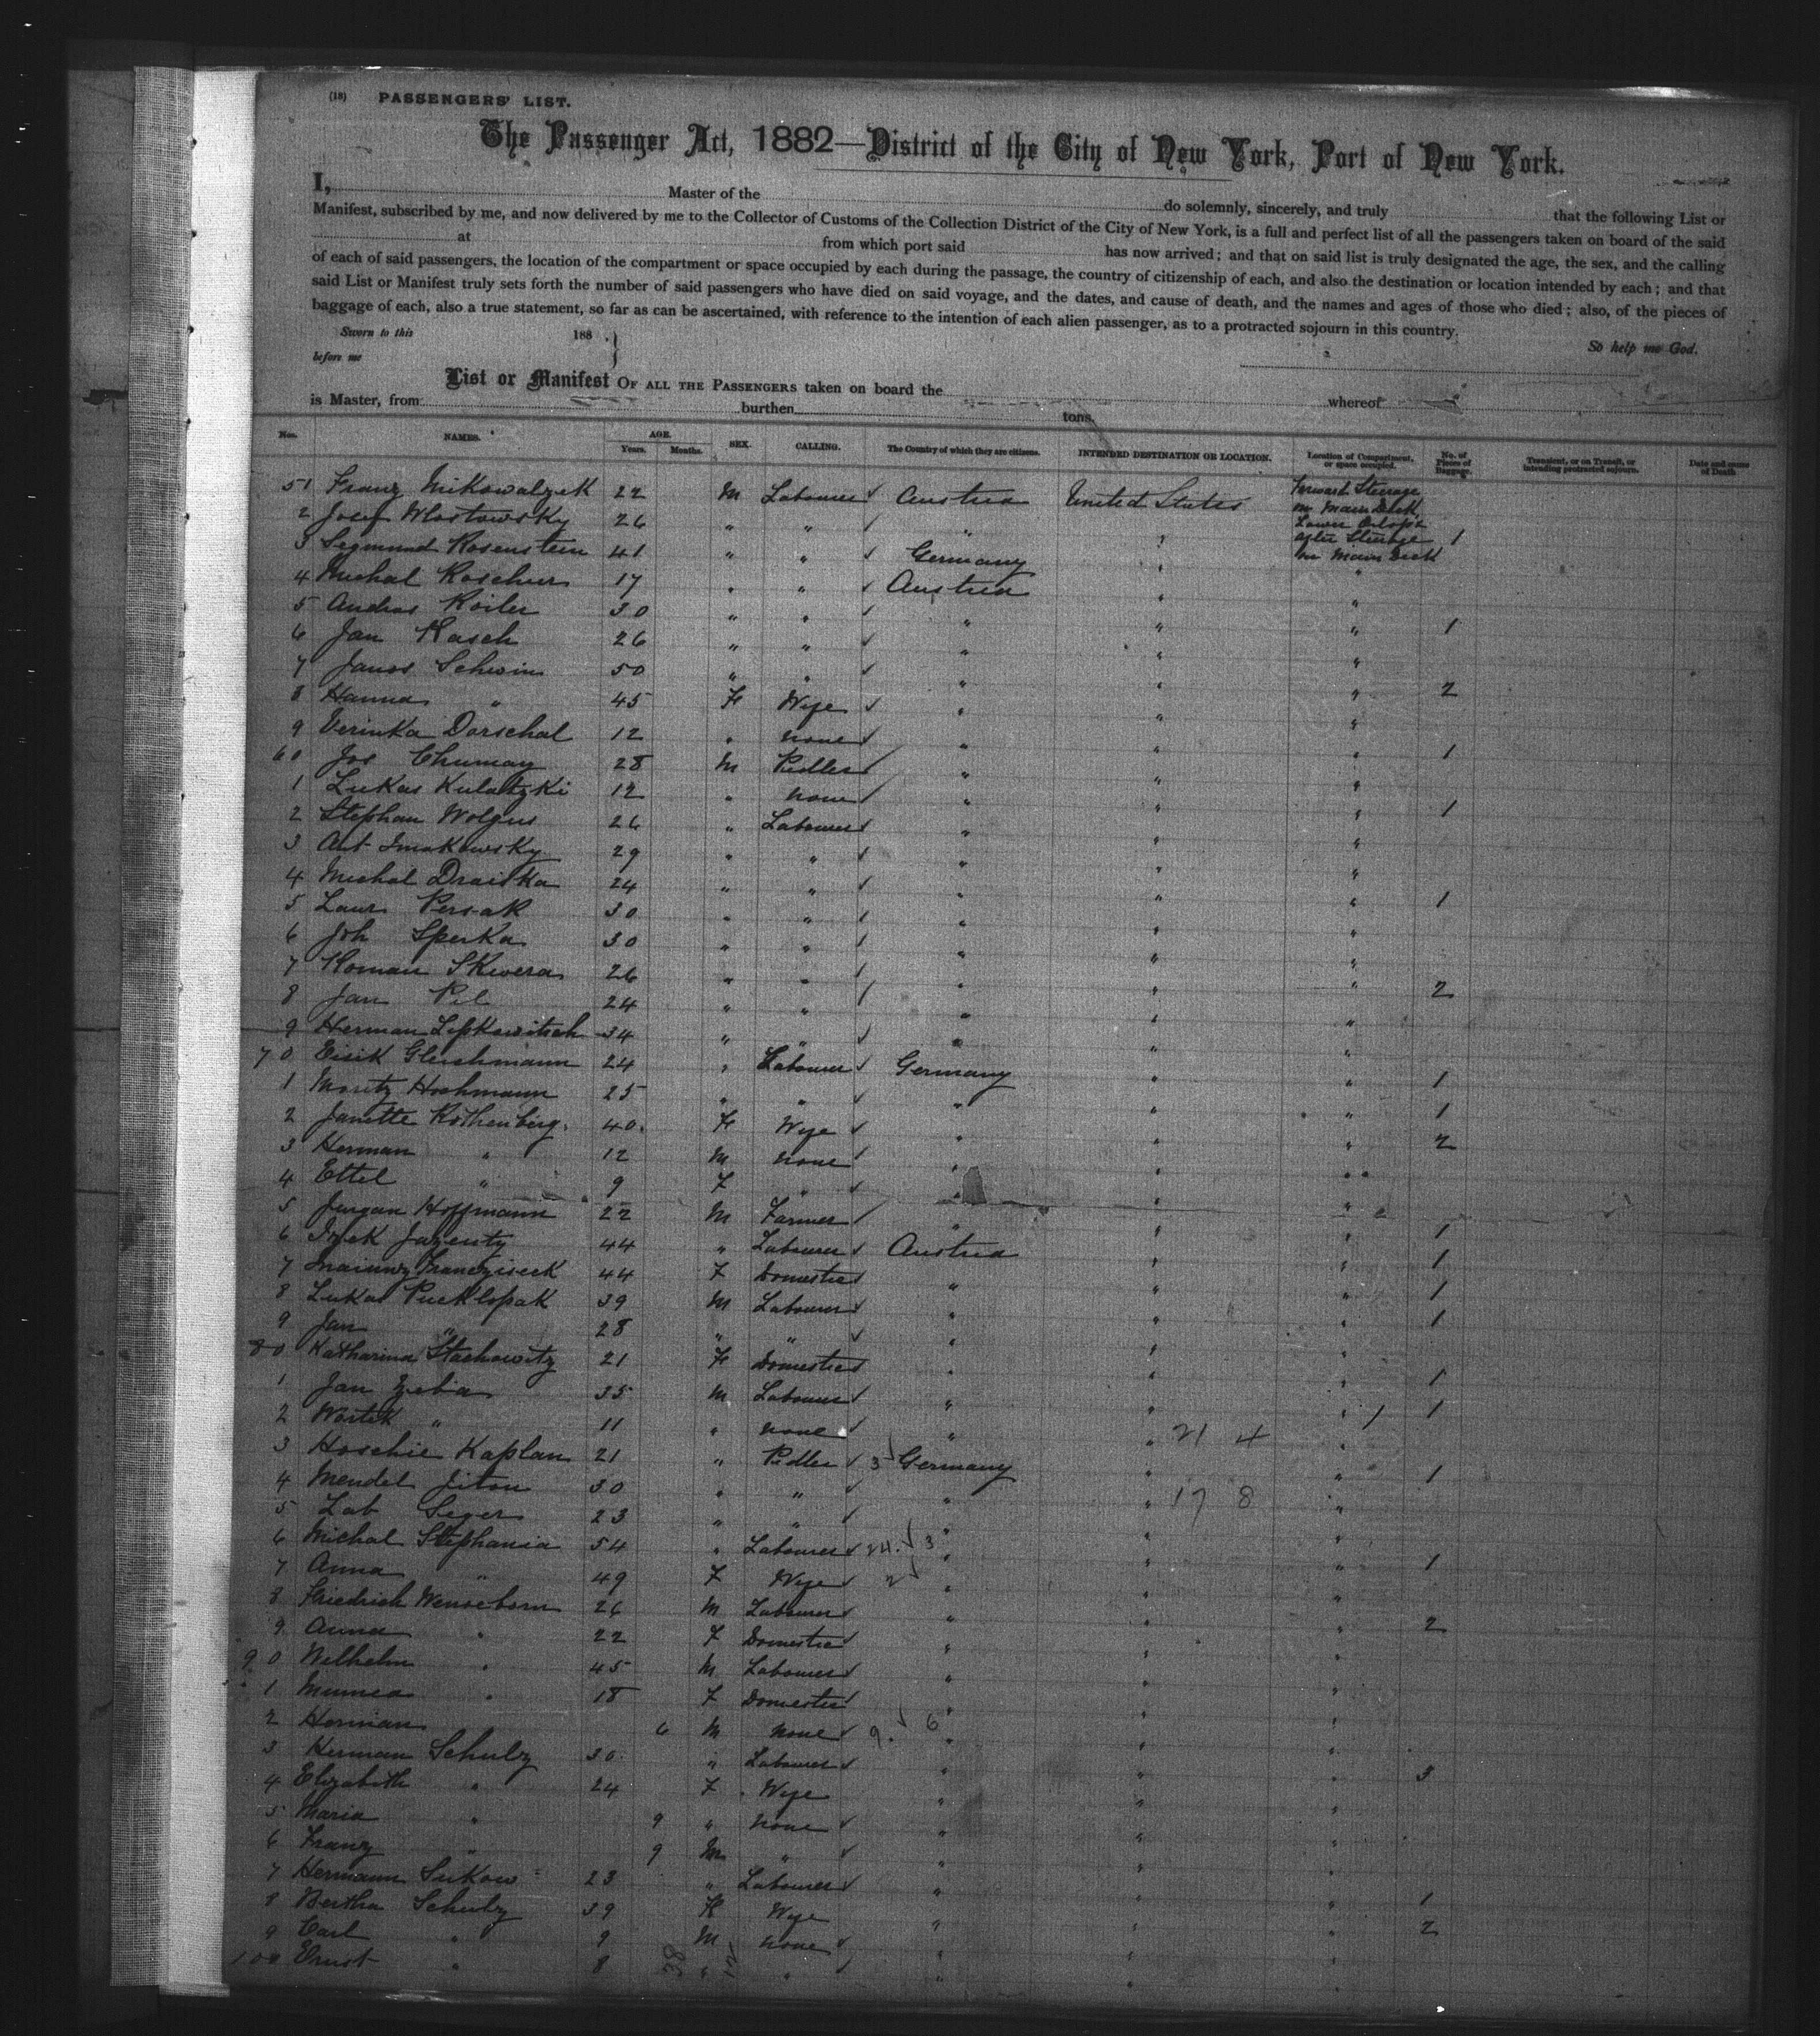 (18) PASSENGERS' LIST.
The Passenger Act, 1882—District of the City of New York, Port of New York.
I, Master of the do solemnly, sincerely, and truly that the following List or
Manifest, subscribed by me, and now delivered by me to the Collector of Customs of the Collection District of the City of New York, is a full and perfect list of all the passengers taken on board of the said
at from which port said has now arrived; and that on said list is truly designated the age, the sex, and the calling
of each of said passengers, the location of the compartment or space occupied by each during the passage, the country of citizenship of each, and also the destination or location intended by each; and that
said List or Manifest truly sets forth the number of said passengers who have died on said voyage, and the dates, and cause of death, and the names and ages of those who died; also, of the pieces of
baggage of each, also a true statement, so far as can be ascertained, with reference to the intention of each alien passenger, as to a protracted sojourn in this country.
Sworn to this 188 . So help me God.
before me
List or Manifest OF ALL THE PASSENGERS taken on board the whereof
is Master, from burthen tons.
Nos. NAMES. AGE. Years. Months. SEX. CALLING. The Country of which they are citizens. INTENDED DESTINATION OR LOCATION. Location of Compartment, or space occupied. No. of Pieces of Baggage. Transient, or on Transit, or intending protracted sojourn. Date and cause of Death.
51 Franz Mikowalzek 22 M Labourer Austria United States Forward Steerage on Main Deck
2 Josef Wlostowsky 26 " " " " Lower Orlop &
3 Segmund Rosenstein 41 " " Germany " after Steerage on Main Deck 1
4 Michal Koschur 17 " " Austria " "
5 Andras Koiler 30 " " " " "
6 Jan Kasch 26 " " " " " 1
7 Janos Schwin 50 " " " " "
8 Hanna " 45 F Wife " " " 2
9 Verinka Dorschal 12 " None " " "
60 Jos Chumay 28 M Pedler " " " 1
1 Lukas Kulatzki 12 " None " " "
2 Stephan Wolgus 26 " Labourer " " " 1
3 Ant Smakowsky 29 " " " " "
4 Michal Draiska 24 " " " " "
5 Laur Persak 30 " " " " " 1
6 Joh Sperka 30 " " " " "
7 Roman Skwera 26 " " " " "
8 Jan Pil 24 " " " " " 2
9 Herman Lefkowitsch 34 " " " " "
70 Eisik Gleichmann 24 " Labourer Germany " "
1 Moritz Hochmann 25 " " " " " 1
2 Janette Rothenberg 40 F Wife " " " 1
3 Herman " 12 M None " " " 2
4 Ettel " 9 F " " " "
5 Jurgan Hoffmann 22 M Farmer " " "
6 Isek Jazenty 44 " Labourer Austria " " 1
7 Franzziseck 44 F Domestic " " " 1
8 Lukas Pucklopak 39 M Labourer " " " 1
9 Jan " 28 " " " " " 1
80 Katharina Stachowitz 21 F Domestic " " "
1 Jan Zeba 35 M Labourer " " " 1
2 Wostek " 11 " None " " 21 4 " 1
3 Hoschie Kaplan 21 " Pedler 3 Germany " "
4 Mendel Jiton 30 " " " " 17 8 " 1
5 Lab Seger 23 " " " " "
6 Michal Stephania 54 " Labourer 24. 3 " " "
7 Anna " 49 F Wife 2 " " " 1
8 Friedrich Wenseborn 26 M Labourer " " "
9 Anna " 22 F Domestic " " " 2
90 Wilhelm " 45 M Labourer " " "
1 Minnea " 18 F Domestic " " "
2 Herman 6 M None 9. 6 " " "
3 Herman Schulz 30 " Labourer " " "
4 Elizabeth " 24 F Wife " " " 3
5 Maria " 9 " None " " "
6 Franz " 9 M " " " "
7 Hermann Sukow 23 " Labourer " " "
8 Bertha Schulz 39 F Wife " " " 1
9 Carl " 9 M None " " " 2
100 Ernst " 8 " " " " "
38 12